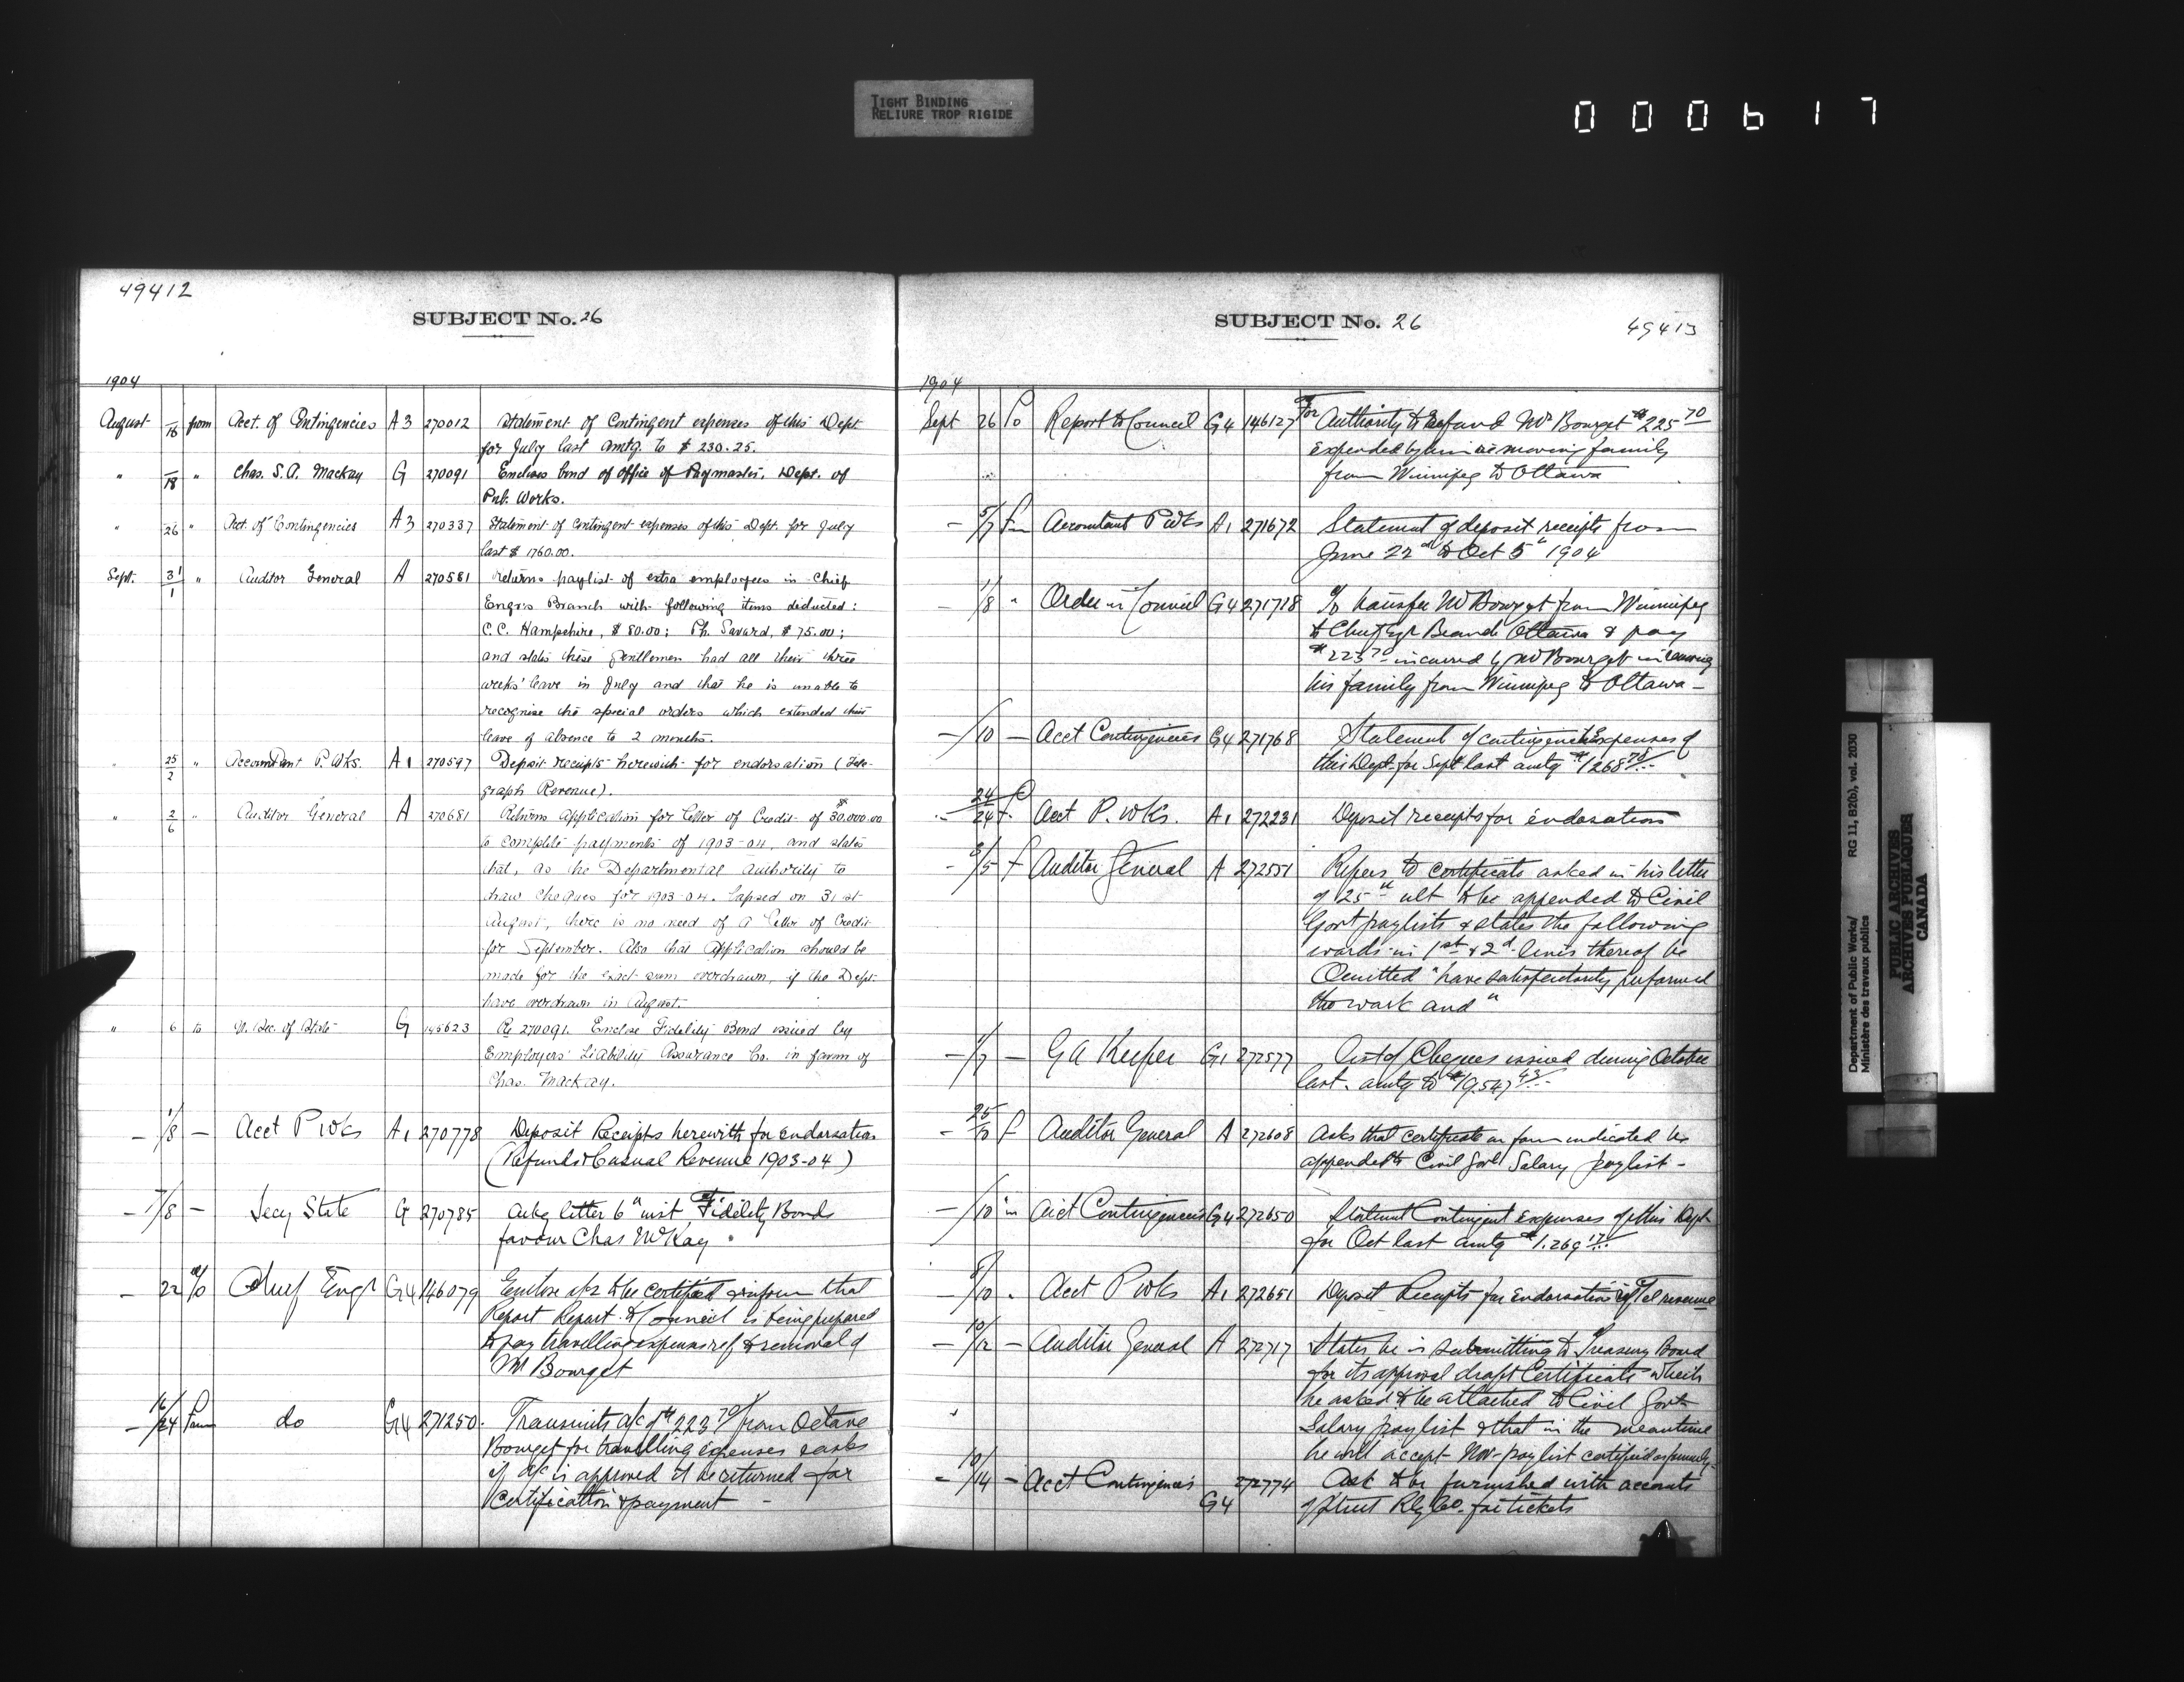 TIGHT BINDING
RELIURE TROP RIGIDE
000617
49412
SUBJECT No. 26
1904
August 16 from Acct. of Contingencies A3 270012 Statement of Contingent expenses of this Dept
for July last amtg. to $230.25.
" 18 " Chas. S. A. Mackay G 270091 Encloses bond of office of Paymaster, Dept. of
Pub. Works.
" 26 " Acct. of Contingencies A3 270337 Statement of Contingent expenses of this Dept. for July
last $1760.00.
Sept. 31/1 " Auditor General A 270581 Returns paylist of extra employees in Chief
Engr's Branch with following items deducted:
C. C. Hampshire, $80.00; Ph. Savard, $75.00;
and states these gentlemen had all their three
weeks' leave in July and that he is unable to
recognise the special orders which extended their
leave of absence to 2 months.
" 25/2 " Accountant P. Wks. A1 270597 Deposit receipts herewith for endorsation (Tele-
graph Revenue).
" 2/6 " Auditor General A 270681 Returns Application for Letter of Credit of $30.000.00
to complete payments of 1903-04, and states
that, as the Departmental authority to
draw cheques for 1903-04. lapsed on 31st
August, there is no need of a Letter of Credit
for September. Also that Application should be
made for the exact sum overdrawn, if the Dept.
have overdrawn in August.
" 6 to U. Sec. of State G 145623 Re 270091. Enclose Fidelity Bond issued by
Employers' Liability Assurance Co. in favor of
Chas. Mackay.
— 1/8 — Acct P Wks A1 270778 Deposit Receipts herewith for Endorsation
(Refunds & Casual Revenue 1903-04)
— 7/8 — Secy State G 270785 Ackg letter 6" inst, Fidelity Bonds
favour Chas McKay
— 22 to Chief Engr G4 146079 Enclose a/cs to be certified & inform that
Report Report to Council is being prepared
to pay travelling expenses ref to removal of
Mr Bourget
— 16/24 from do G4 271250 Transmits a/c of $223 70/ from Octave
Bourget for travelling expenses & asks
if a/c is approved it be returned for
Certification & payment —
SUBJECT No. 26
49413
1904
Sept 26 to Report to Council G4 146127 For Authority to Refund Mr Bourget $225 70
expended by him in moving family
from Winnipeg to Ottawa
— 5/7 fm Accountant P Wks A1 271672 Statement of deposit receipts from
June 22nd to Oct 5" 1904
— 1/8 " Order in Council G4 271718 To transfer Mr Bourget from Winnipeg
to Chief Engr Branch Ottawa & pay
$223 70 incurred by Mr Bourget in
his family from Winnipeg to Ottawa —
— /10 — Acct Contingencies G4 271768 Statement of contingent Expenses of
this Dept. for Sept last amtg $1268 75
24/24 f Acct P. Wks. A1 272231 Deposit receipts for endorsation
— 3/5 f Auditor General A 272551 Refers to certificate asked in his letter
of 25" ult to be appended to Civil
Govt paylists & states the following
words in 1st & 2d lines thereof be
Omitted "have satisfactorily performed
the work and"
— /7 — G A Keefer G1 272577 List of Cheques issued during October
last. amtg to $19.547 43
— 25/10 f Auditor General A 272608 Asks that certificate in form indicated be
appended to Civil Govt Salary paylist —
— /10 Acct Contingencies G4 272650 Statement Contingent Expenses of this Dept
for Oct last amtg $1.269 17
— 8/10 " Acct P Wks A1 272651 Deposit Receipts for Endorsation Tel revenue
— 10/12 — Auditor General A 272717 States he is submitting to Treasury Board
for its approval draft Certificate which
he asked to be attached to Civil Govt
Salary paylist & that in the meantime
he will accept Nov. paylist certified as formerly.
— 10/14 — Acct Contingencies G4 272774 Ask to be furnished with accounts
of Street Rly Co. for tickets
Department of Public Works/
Ministère des travaux publics
RG 11, B2(b), vol. 2030
PUBLIC ARCHIVES
ARCHIVES PUBLIQUES
CANADA